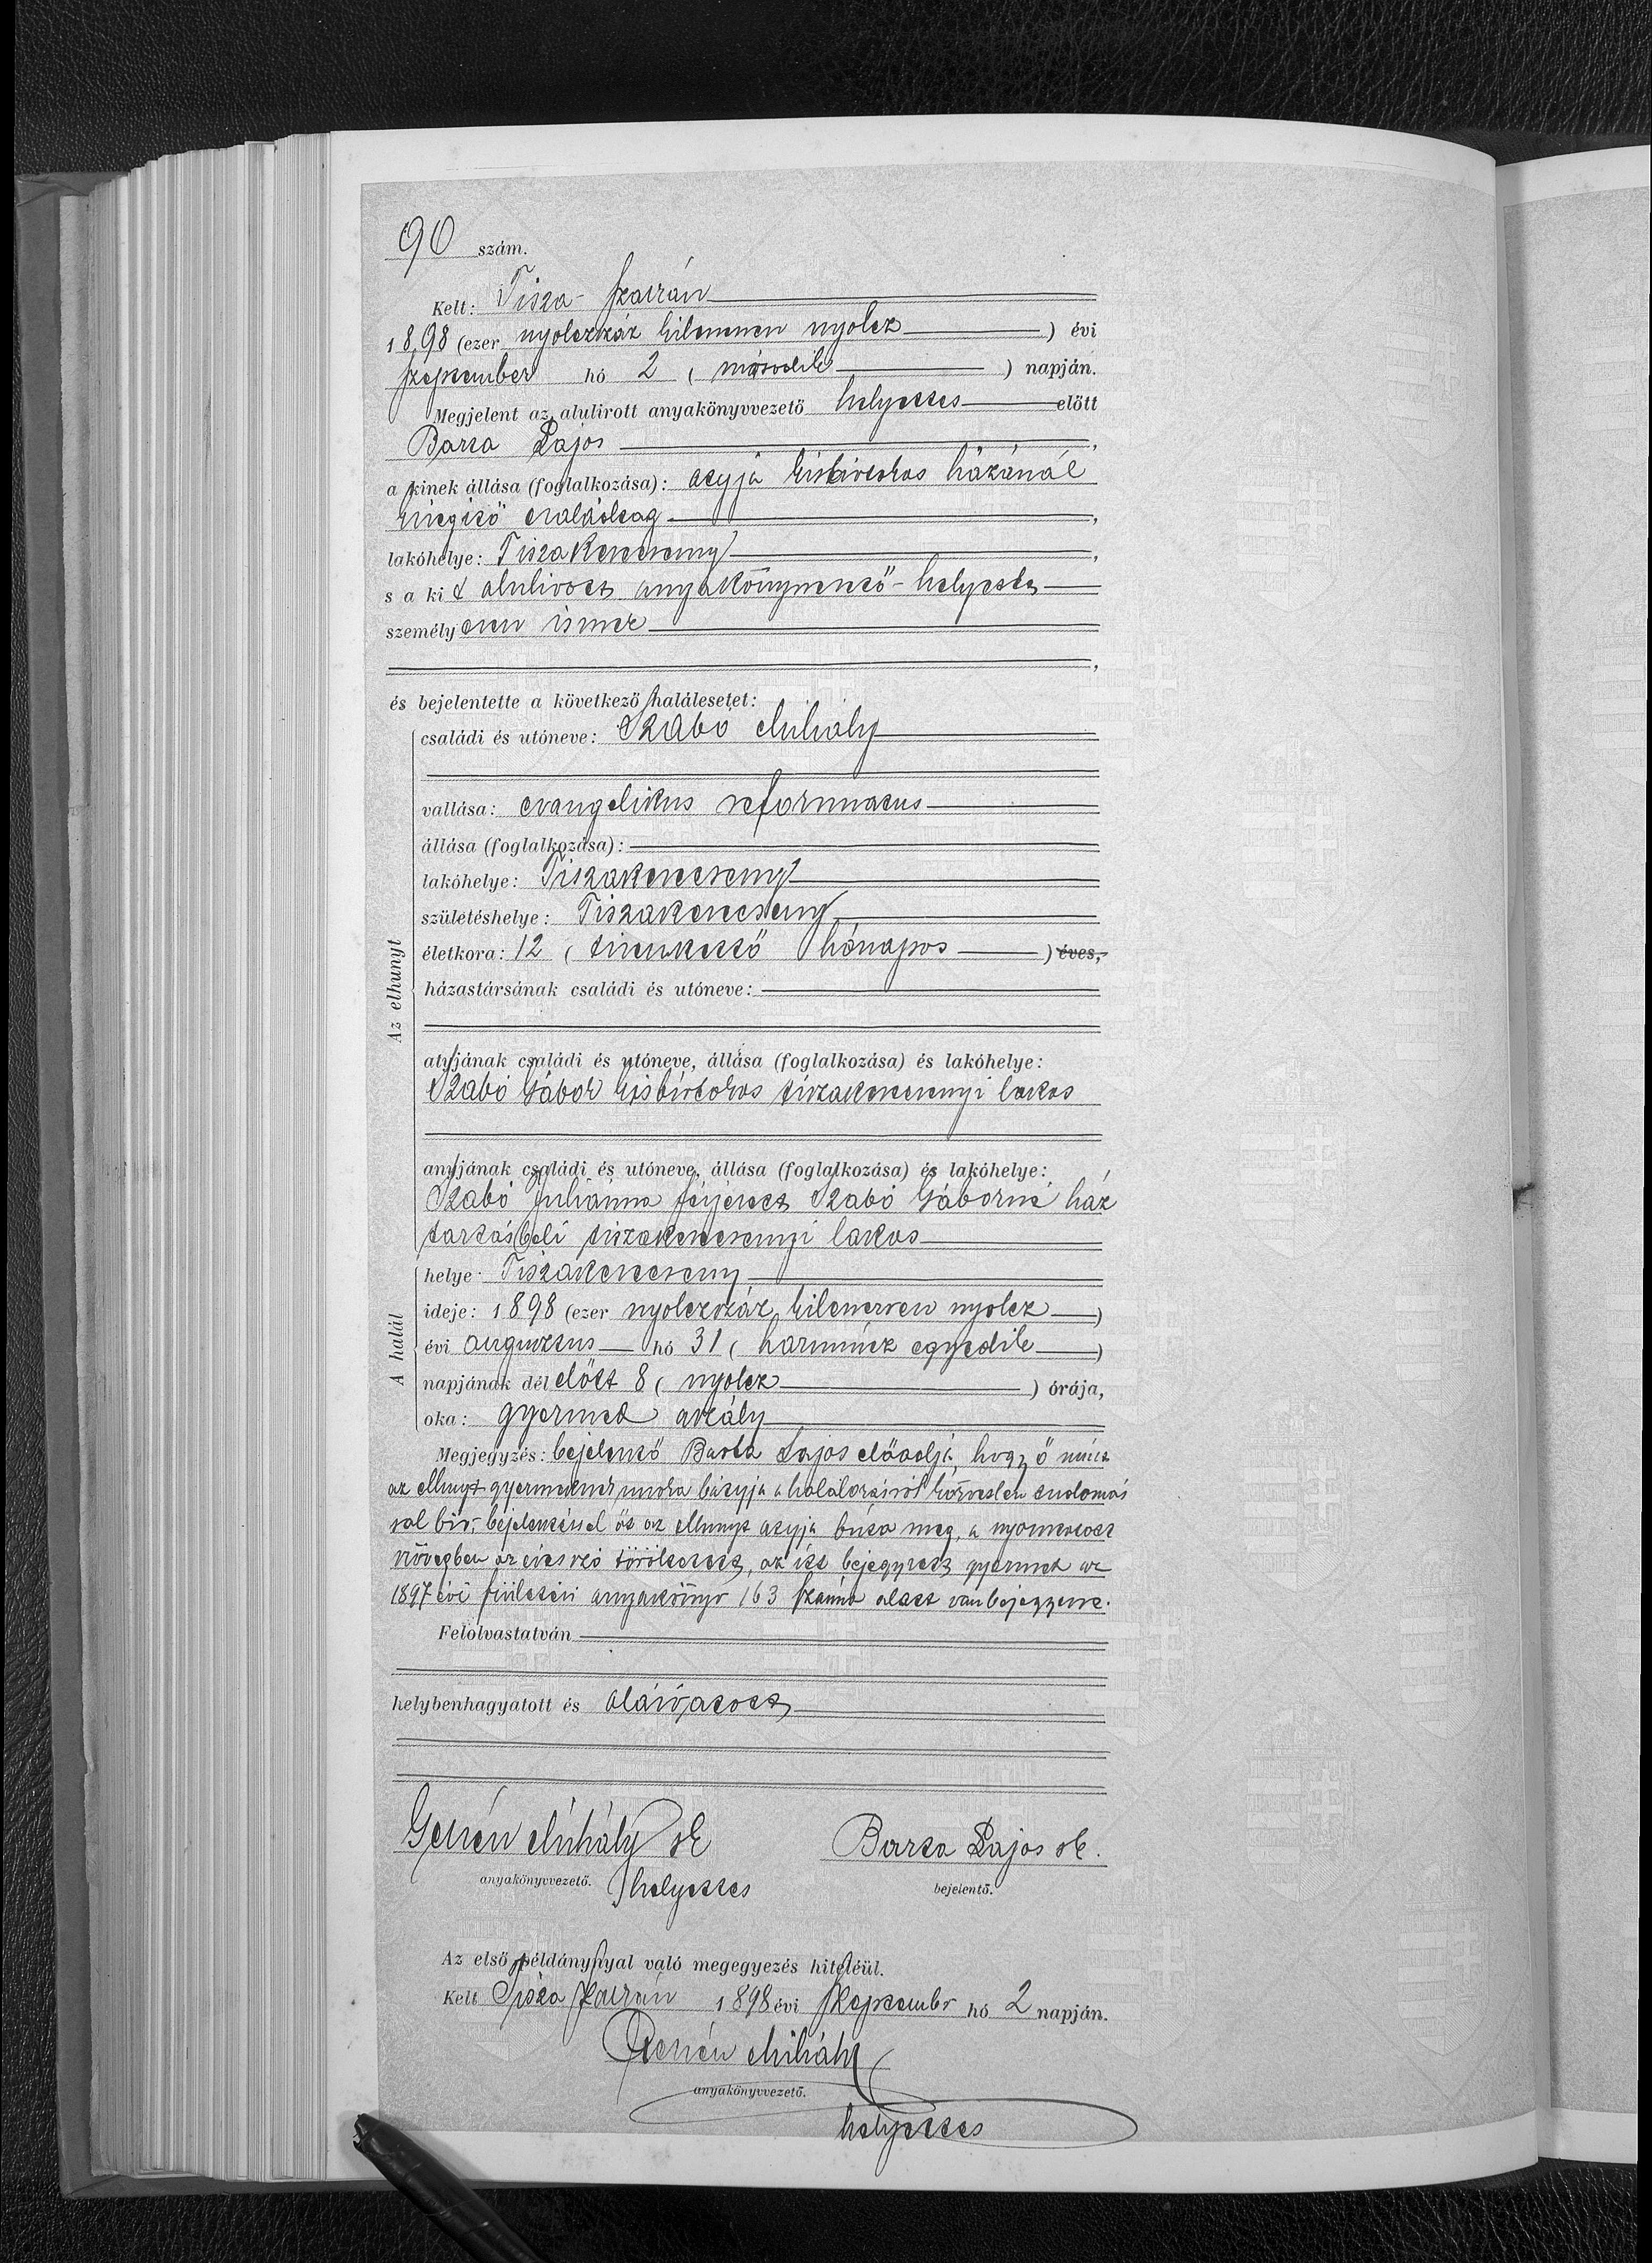 90 szám.
Kelt: Tisza-
1898 (ezer nyolczszáz kilenczven nyolcz) évi
szeptember hó 2 (második) napján.
Megjelent az alulirott anyakönyvvezető helyettes előtt
Barta Lajos,
a kinek állása (foglalkozása): atyja kisbirtokos házánál
segitő családtag,
lakóhelye: Tiszakerecseny,
s a kit alulirott anyakönyvvezető-helyettes
személyesen ismer
,
és bejelentette a következő halálesetet:
Az elhunyt
családi és utóneve: Szabó Mihály
vallása: evangelikus reformatus
állása (foglalkozása):
lakóhelye: Tiszakerecseny
születéshelye: Tiszakerecseny
életkora: 12 (tizenkettő hónapos) éves,
házastársának családi és utóneve:
atyjának családi és utóneve, állása (foglalkozása) és lakóhelye:
Szabó Gábor kisbirtokos tiszakerecsenyi lakos
anyjának családi és utóneve, állása (foglalkozása) és lakóhelye:
Szabó Juliánna férjezett Szabó Gáborné ház
tartásbeli tiszakerecsenyi lakos
A halál
helye: Tiszakerecseny
ideje: 1898 (ezer nyolczszáz kilenczven nyolcz)
évi augusztus hó 31 (harmincz egyedik)
napjának délelőtt 8 (nyolcz) órája,
oka: gyermek aszály
Megjegyzés: bejelentő Barta Lajos előadja, hogy ő mint
az elhunyt gyermeknek unoka bátyja a halálozásról közvetlen tudomás
sal bir, bejelentéssel őt az elhunyt atyja bízta meg, a nyomtatott
szövegben az éves szó töröltetett, az itt bejegyzett gyermek az
1897 évi születési anyakönyv 163 száma alatt van bejegyezve.
Felolvastatván
helybenhagyatott és aláiratott
Mihály sk Barta Lajos sk.
anyakönyvvezető. helyettes bejelentő.
Az első példánynyal való megegyezés hiteléül.
Kelt Tisza 1898 évi szeptembr hó 2 napján.
Mihály
anyakönyvvezető.
helyettes